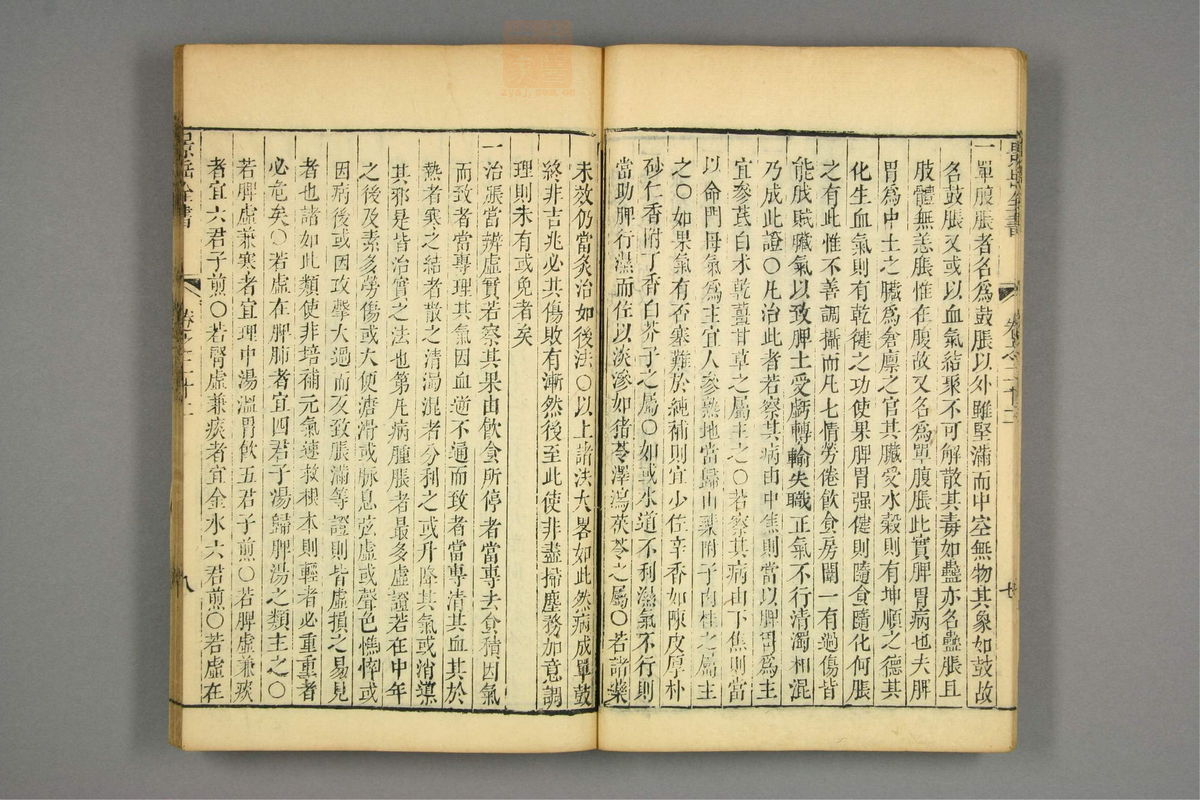 一單腹脹者名爲鼓脹以外雖堅滿而中空無物其象如鼓故
名鼓脹又或以血氣結聚不可解散其毒如蠱亦名蠱脹且
肢體無恙脹惟在腹故又名爲單腹脹此實脾胃病也夫脾
胃爲中土之臟爲倉廩之官其臟受水穀則有坤順之德其
化生血氣則有乾健之功使果脾胃强健則隨食隨化何脹
之有此惟不善調攝而凡七情勞倦飲食房闈一有過傷皆
能戕賊臟氣以致脾土受虧轉輸失職正氣不行清濁相混
乃成此證○凡治此者若察其病由中焦則當以脾胃爲主
宜參芪白术乾薑甘草之屬主之○若察其病由下焦則當
以命門母氣爲主宜人參熟地當歸山藥附子肉桂之屬主
之○如果氣有痞塞難於純補則宜少佐辛香如陳皮厚朴
砂仁香附丁香白芥子之屬○如或水道不利濕氣不行則
當助脾行濕而佐以淡滲如猪苓澤瀉茯苓之屬○若諸藥
未效仍當灸治如後法○以上諸法大畧如此然病成單鼓
終非吉兆必其傷敗有漸然後至此使非盡掃塵務加意調
理則未有或免者矣
一治脹當辨虛實若察其果由飲食所停者當專去食積因氣
而致者當專理其氣因血逆不通而致者當專清其血其於
熱者寒之結者散之清濁混者分利之或升降其氣或消導
其邪是皆治實之法也第凡病腫脹者最多虛證若在中年
之後及素多勞傷或大便溏滑或脉息弦虛或聲色憔悴或
因病後或因攻擊太過而反致脹滿等證則皆虛損之易見
者也諸如此類使非培補元氣速救根本則輕者必重重者
必危矣○若虛在脾肺者宜四君子湯歸脾湯之類主之○
若脾虛兼寒者宜理中湯溫胃飲五君子煎○若脾虛兼痰
者宜六君子煎○若腎虛兼痰者宜金水六君煎○若虛在
景岳全書
卷之二十二
八
景岳全書
卷之二十二
七